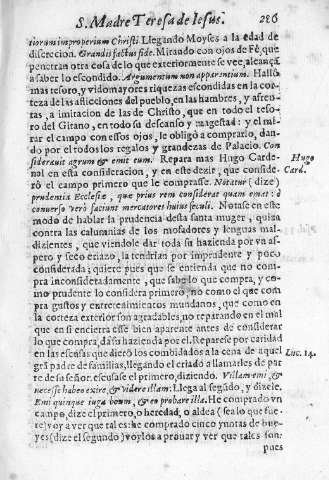 S. Madre Teresa de Iesus. 286
tiorum improperium Christi Llegando Moyses a la edad de
discrecion. Grandis factus fide. Mirando con ojos de Fè, que
penetran otra cosa de lo que exteriormente se vee, alcançà
a saber lo escondido. Argumentum non apparentium. Hallò
mas tesoro, y vido mayores riquezas escondidas en la cor-
teza de las aflicciones del pueblo, en las hambres, y afren-
tas, a imitacion de las de Christo, que en todo el teso-
ro del Gitano, en todo su descanso y magestad: y el mi-
rar el campo con essos ojos, le obligò a comprarlo, dan-
do por el todos los regalos y grandezas de Palacio. Con
siderauit agrum & emit eum. Repara mas Hugo Carde-
nal en esta consideracion, y en este dezir, que conside-
rò el campo primero que le comprasse. Notatur (dize)
prudentia Ecclesiæ, quæ prius rem considerat quam emat: è
conuerso verò faciunt mercatores huius seculi. Notase en este
modo de hablar la prudencia desta santa muger, quiza
contra las calumnias de los mofadores y lenguas mal-
dizientes, que viendole dar toda su hazienda por vn as-
pero y seco eriazo, la tendrian por imprudente y poco
considerada; quiere pues que se entienda que no com-
pra inconsideradamente, que sabe lo que compra, y co-
mo prudente lo considera primero, no como el que com
pra gustos y entretenimientos mundanos, que como en
la corteza exterior son agradables, no reparando en el mal
que en si encierra esse bien aparente antes de considerar
lo que compra, dà su hazienda por el. Reparese por caridad
en las escusas que dierõ los combidados a la cena de aquel
grã padre de familias, llegando el criado a llamarles de par
te de su señor. escusase el primero, diziendo. Villam emi, &
necesse habeo exire, & videre illam. Llega al segũdo, y dizele.
Emi quinque iuga boum, & eo probare illa. He comprado vn
campo, dize el primero, o heredad, o aldea (sea lo que fue-
re) voy a ver que tal es: he comprado cinco yuntas de bue-
yes (dize el segundo) voylos a prouar y ver que tales son:
pues
Hugo
Card.
Luc. 14.